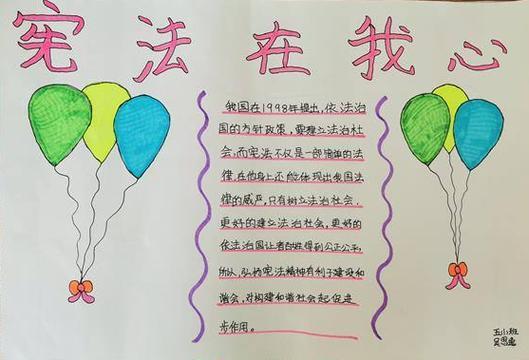 宪法在我心
我国在1998年提出,依法治
国的方针政策,要建立法治社
会,而宪法不仅是一部简单的法
律,在他身上还能体现出我国法
律的威严,只有树立法治社会,
更好的建立法治社会,更好的
依法治国让老百姓得到公正公平,
所以,弘扬宪法精神有利于建设和
谐会,对构建和谐社会起促进
步作用。